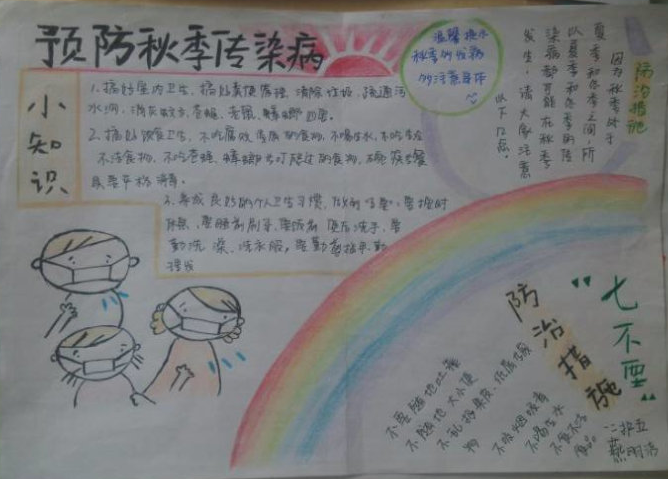 预防秋季传染病
小知识
1、搞好室内卫生,搞好粪便管理,清除垃圾,疏通污
水沟,消灭蚊子、苍蝇、老鼠、蟑螂四害。
2、搞好饮食卫生,不吃腐败变质的食物,不喝生水,不吃
不洁食物,不吃苍蝇、蟑螂叮爬过的食物,
严格消毒。
3、养成良好的个人卫生习惯,
睡前刷牙,饭前便后洗手,要
勤洗澡、洗衣服,要勤剪指甲、勤
理发
温馨提示
秋季
的注意事项
防治措施
因为秋季处于
夏季和冬季之间,所
以夏季和冬季的传
染病都可能在秋季
发生,请大家注意
以下几点。
"七不要"
防治措施
不要随地吐痰
不随地大小便
不乱扔果皮、纸屑
物
不喝生水
食品